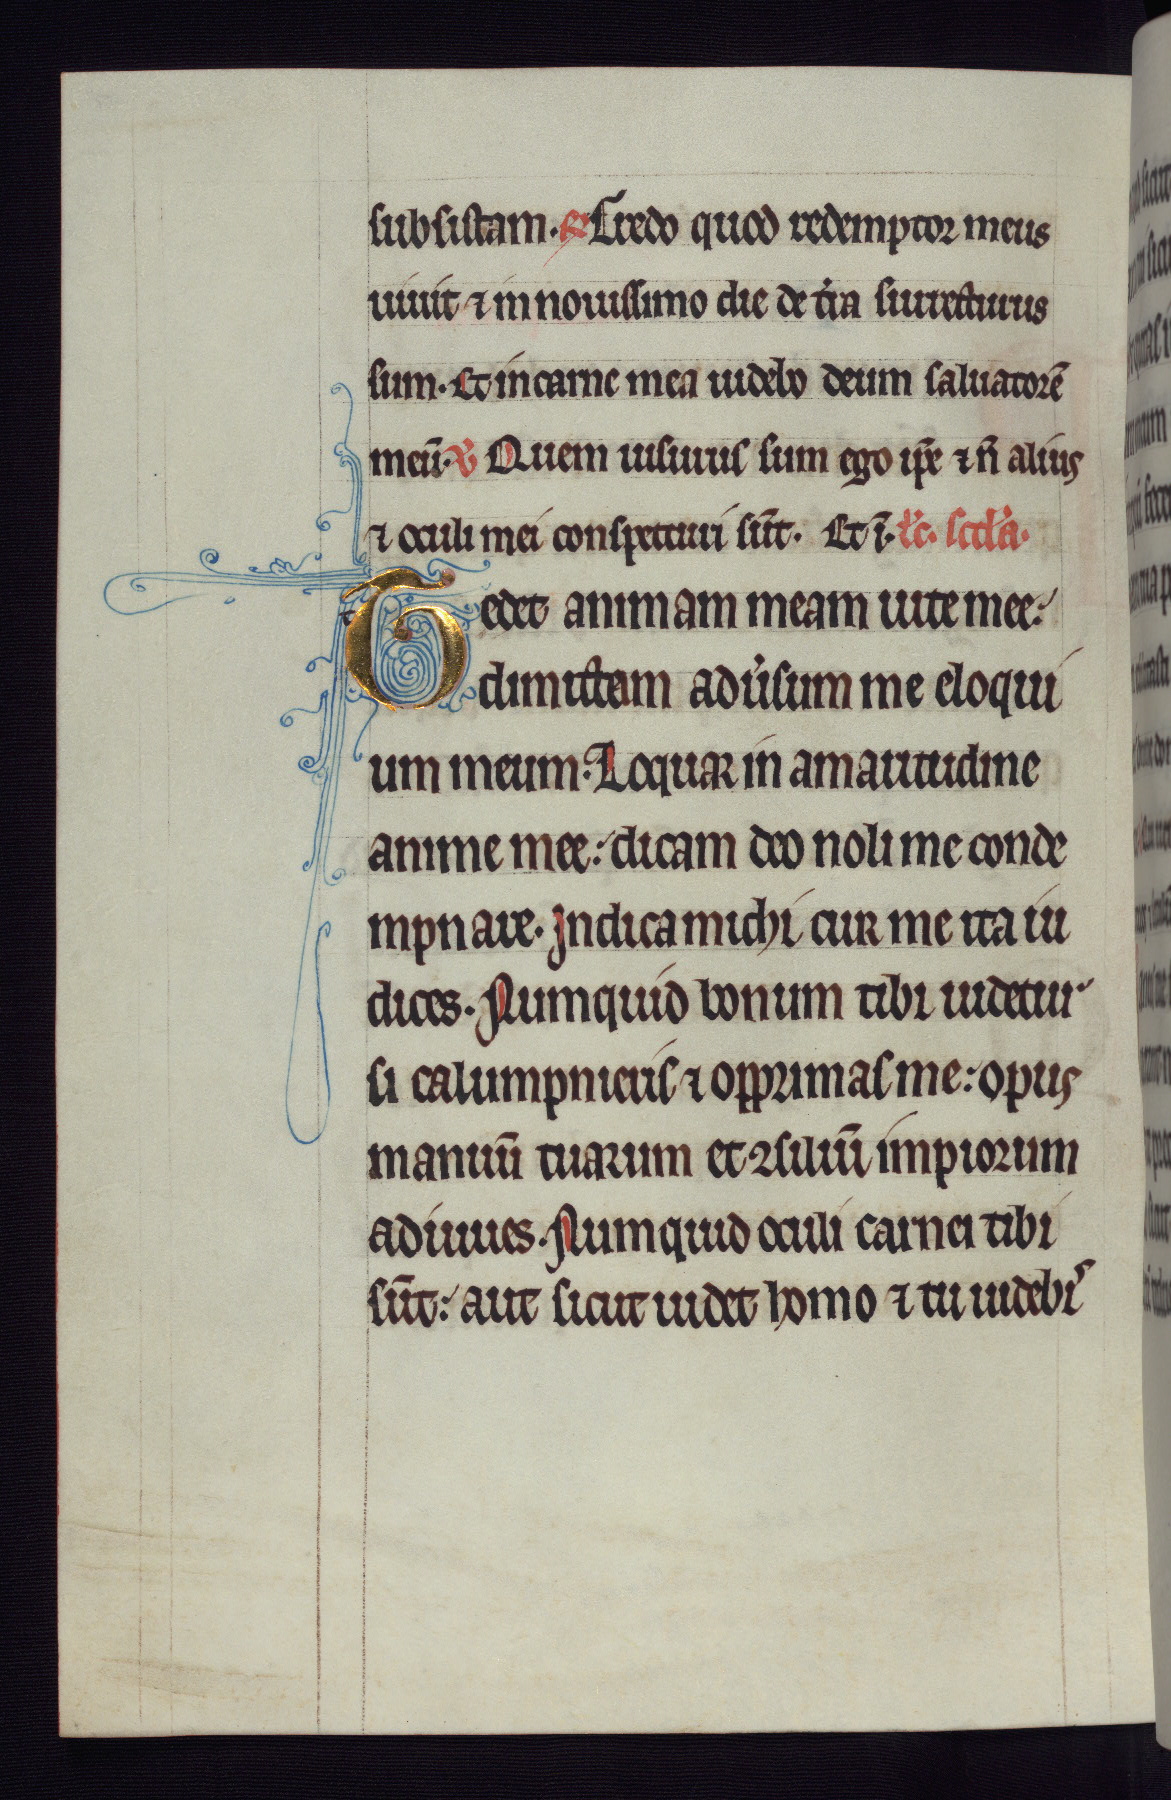 subsistam. R Credo quod redemptor meus
uiuit ⁊ in nouissimo die de t̉ra surrecturus
sum. Et in carne mea uidebo deum saluatorē
meū. V Quem uisurus sum ego ip̄e ⁊ ñ alius
⁊ oculi mei conspecturi sūt. Et ī. lc̄. scd̄a.
Tedet animam meam uite mee:
dimittam adu̓sum me eloqui
um meum. Loquar in amaritudine
anime mee: dicam deo noli me conde
mpnare. Indica michi cur me ita iu
dices. Numquid bonum tibi uidetur
si calumpnieris ⁊ opprimas me: opus
manuū tuarum et ꝯsiliū impiorum
adiuues. Numquid oculi carnei tibi
sūt: aut sicut uidet homo ⁊ tu uidebis